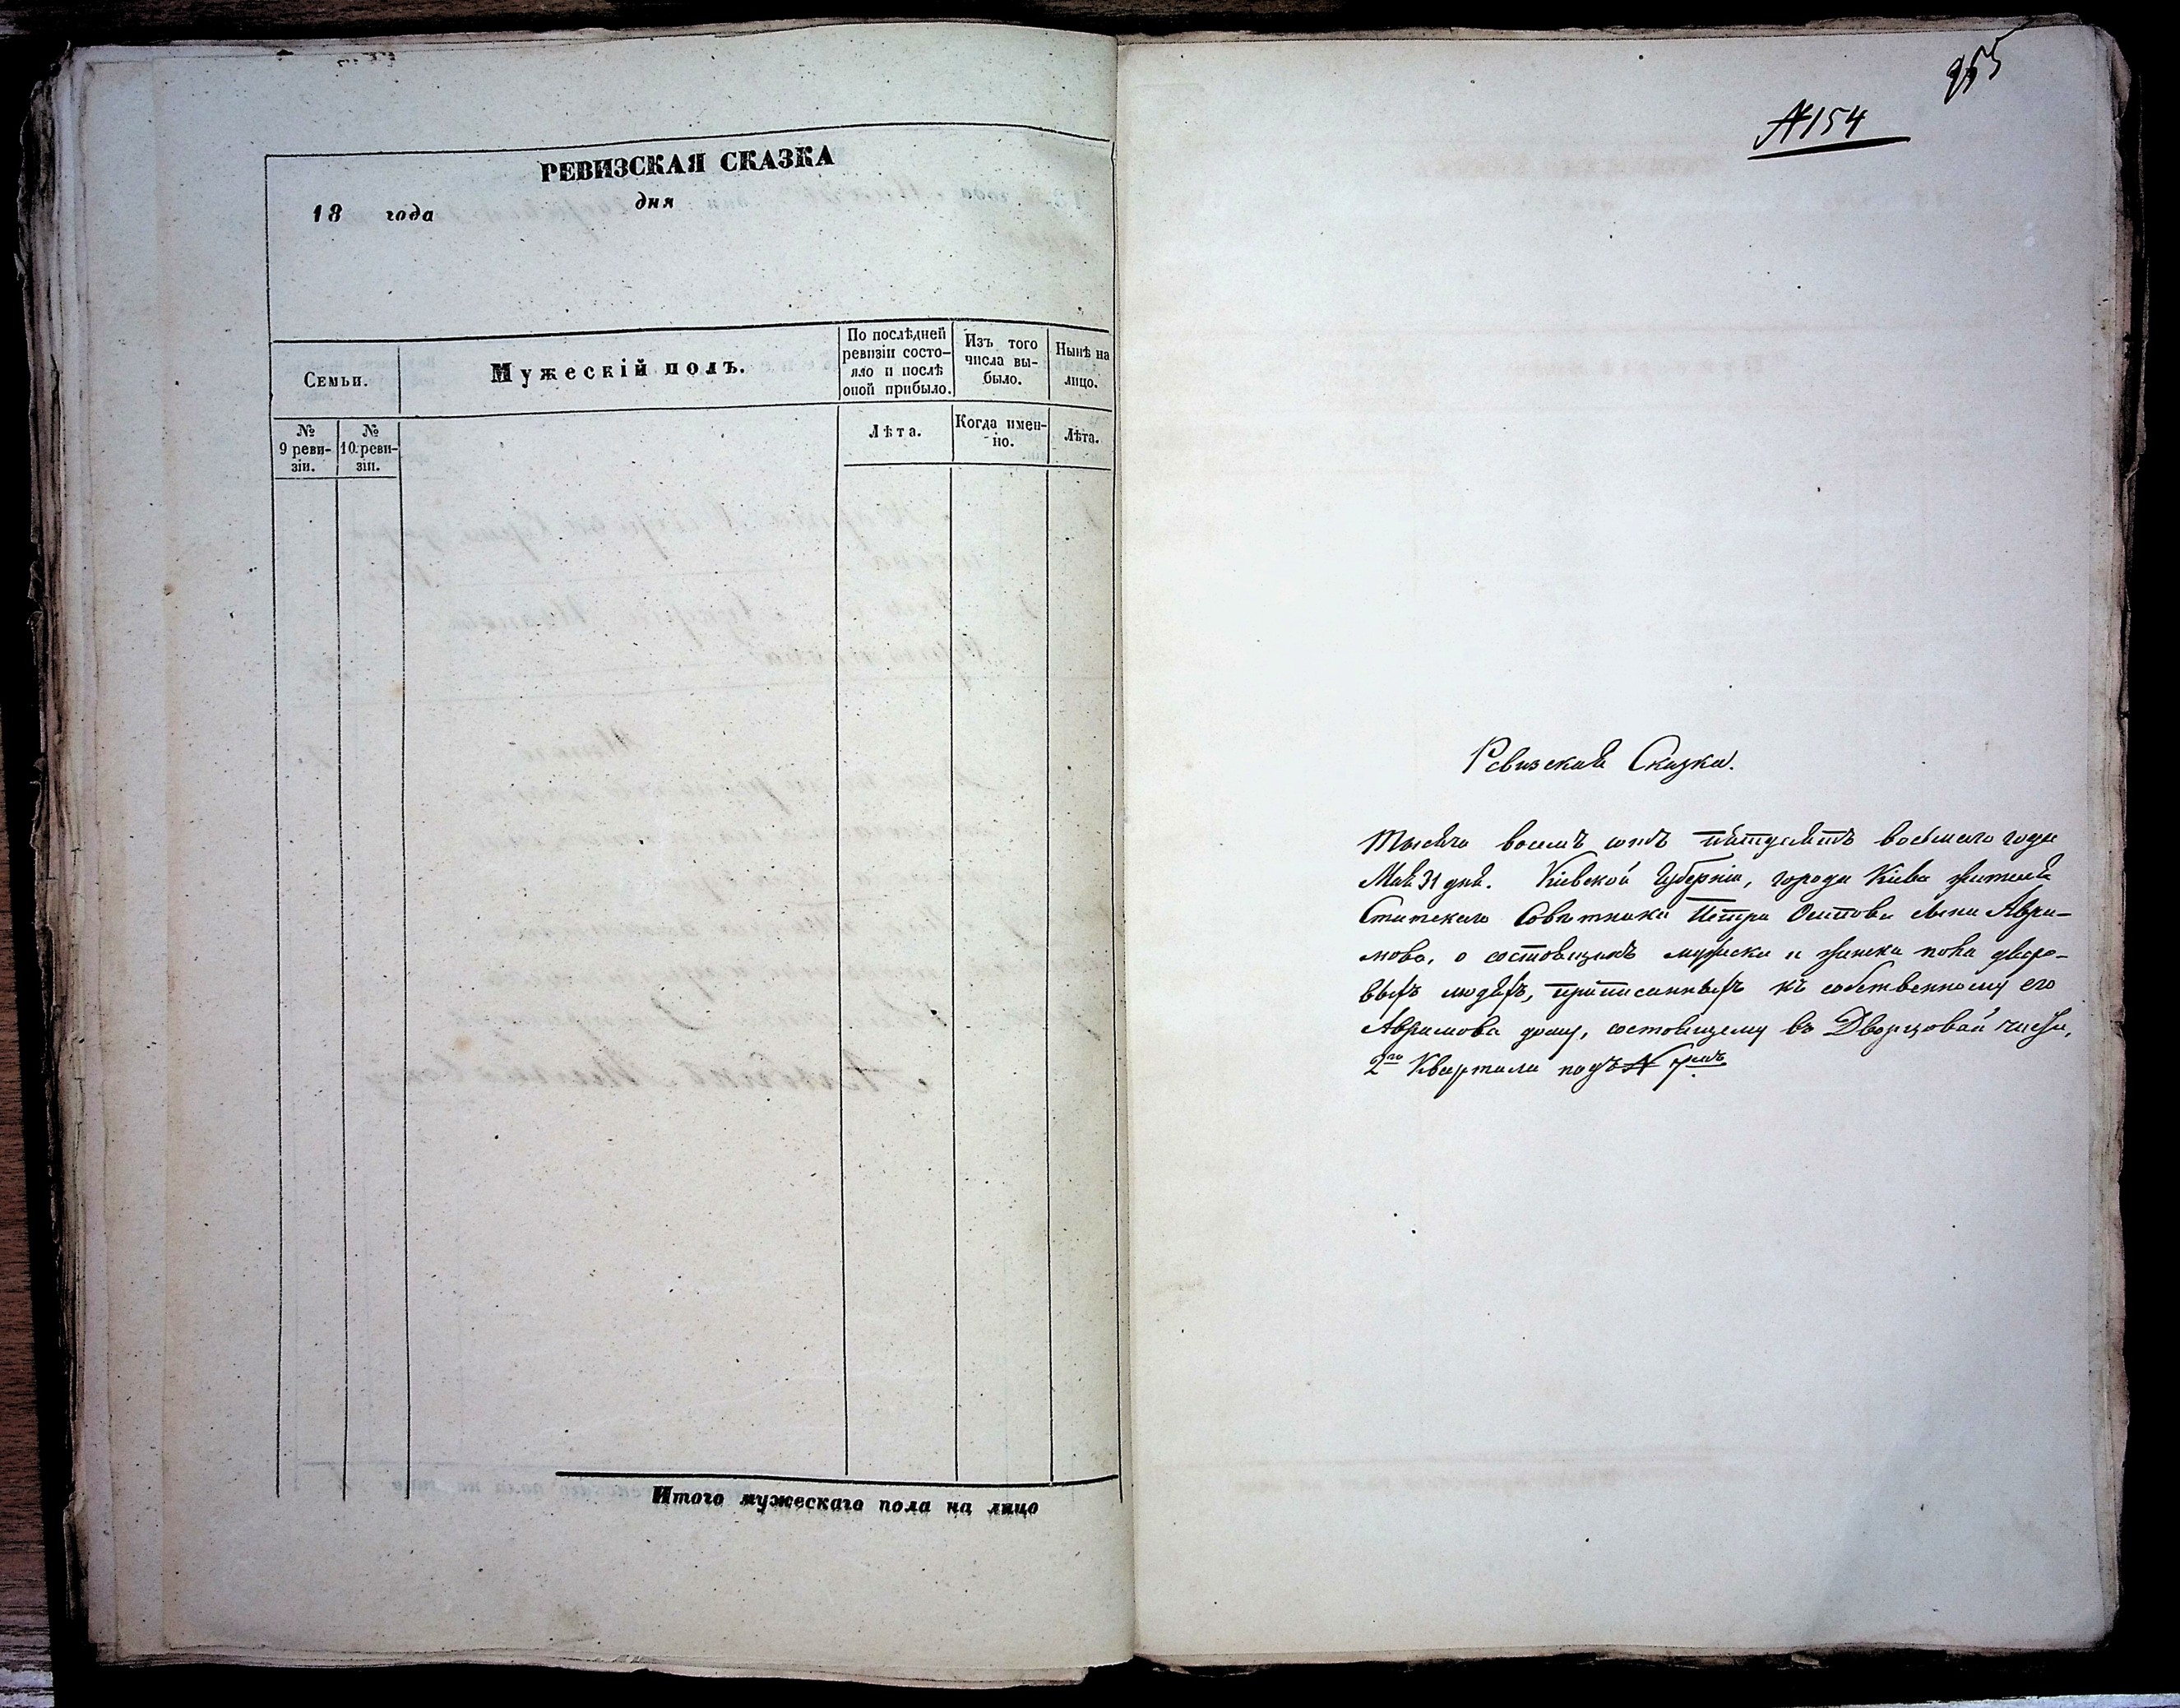 РЕВИЗСКАЯ СКАЗКА
18 года дня
Семьи.
Мужескій полъ.
По послѣдней ревизіи состояло и послѣ оной прибыло.
Изъ того числа выбыло.
Нынѣ на лицо.
№ 9 ревизіи.
№ 10 ревизіи.
Лѣта.
Когда именно.
Лѣта.
Итого мужескаго пола на лицо
955
№154
Ревизская Сказка.
Тысяча восемъ сотъ пятдесятъ восьмаго года
Мая 31 дня. Кіевской Губерніи, города Кіева жителя
Статскаго Совѣтника Петра Осипова сына Авра-
мова, о состоящихъ мужеска и женска пола дворо-
выхъ людяхъ, приписанныхъ къ собственному его
Аврамова дому, состоящему въ Дворцовой части,
2го Квартала подъ № 7мъ